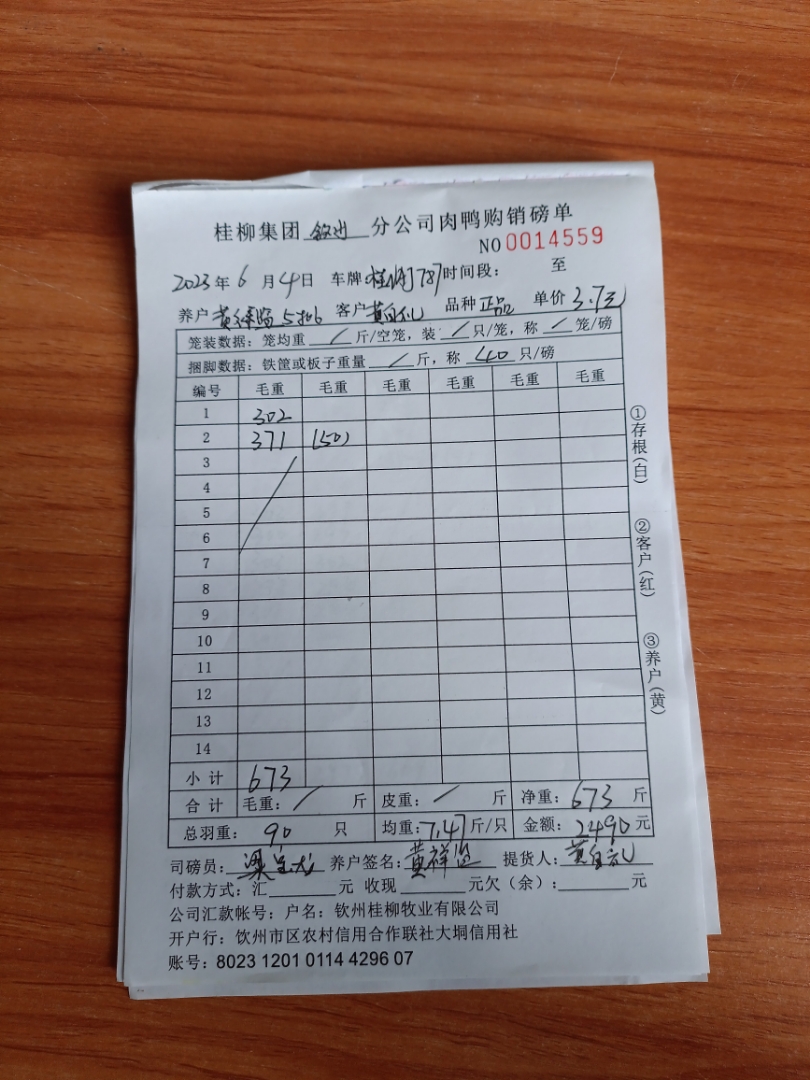 桂柳集团钦州分公司肉鸭购销磅单
NO 0014559
2023年6月4日 车牌 787 时间段: 至
养户 黄祥 客户 黄 品种 正品 单价 3.7元
笼装数据:笼均重 / 斤/空笼,装 / 只/笼,称 / 笼/磅
捆脚数据:铁筐或板子重量 / 斤,称 40 只/磅
编号 毛重 毛重 毛重 毛重 毛重 毛重
1 302
2 371 (50)
3
4
5
6
7
8
9
10
11
12
13
14
小计 673
合计 毛重: / 斤 皮重: / 斤 净重: 673 斤
总羽重: 90 只 均重: 7.47 斤/只 金额: 2490 元
司磅员: 梁 养户签名: 黄祥 提货人: 黄
付款方式:汇 元 收现 元欠(余): 元
公司汇款帐号:户名:钦州桂柳牧业有限公司
开户行:饮州市区农村信用合作联社大垌信用社
账号:8023 1201 0114 4296 07
①存根(白)
②客户(红)
③养户(黄)